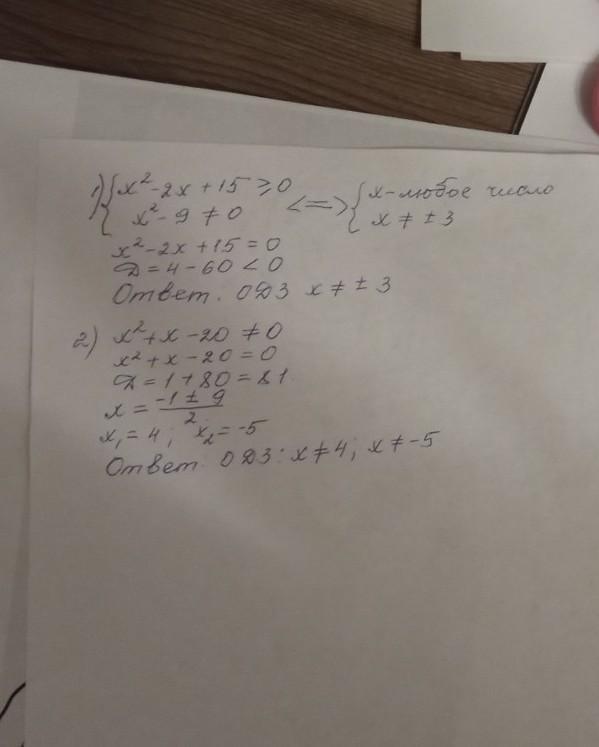 1) { x² - 2x + 15 ≥ 0 <=> { x - любое число
x² - 9 ≠ 0 x ≠ ± 3
x² - 2x + 15 = 0
Д = 4 - 60 < 0
Ответ. ОДЗ x ≠ ± 3
2) x² + x - 20 ≠ 0
x² + x - 20 = 0
Д = 1 + 80 = 81
x = (-1 ± 9)/2
x₁ = 4; x₂ = -5
Ответ: ОДЗ: x ≠ 4; x ≠ -5